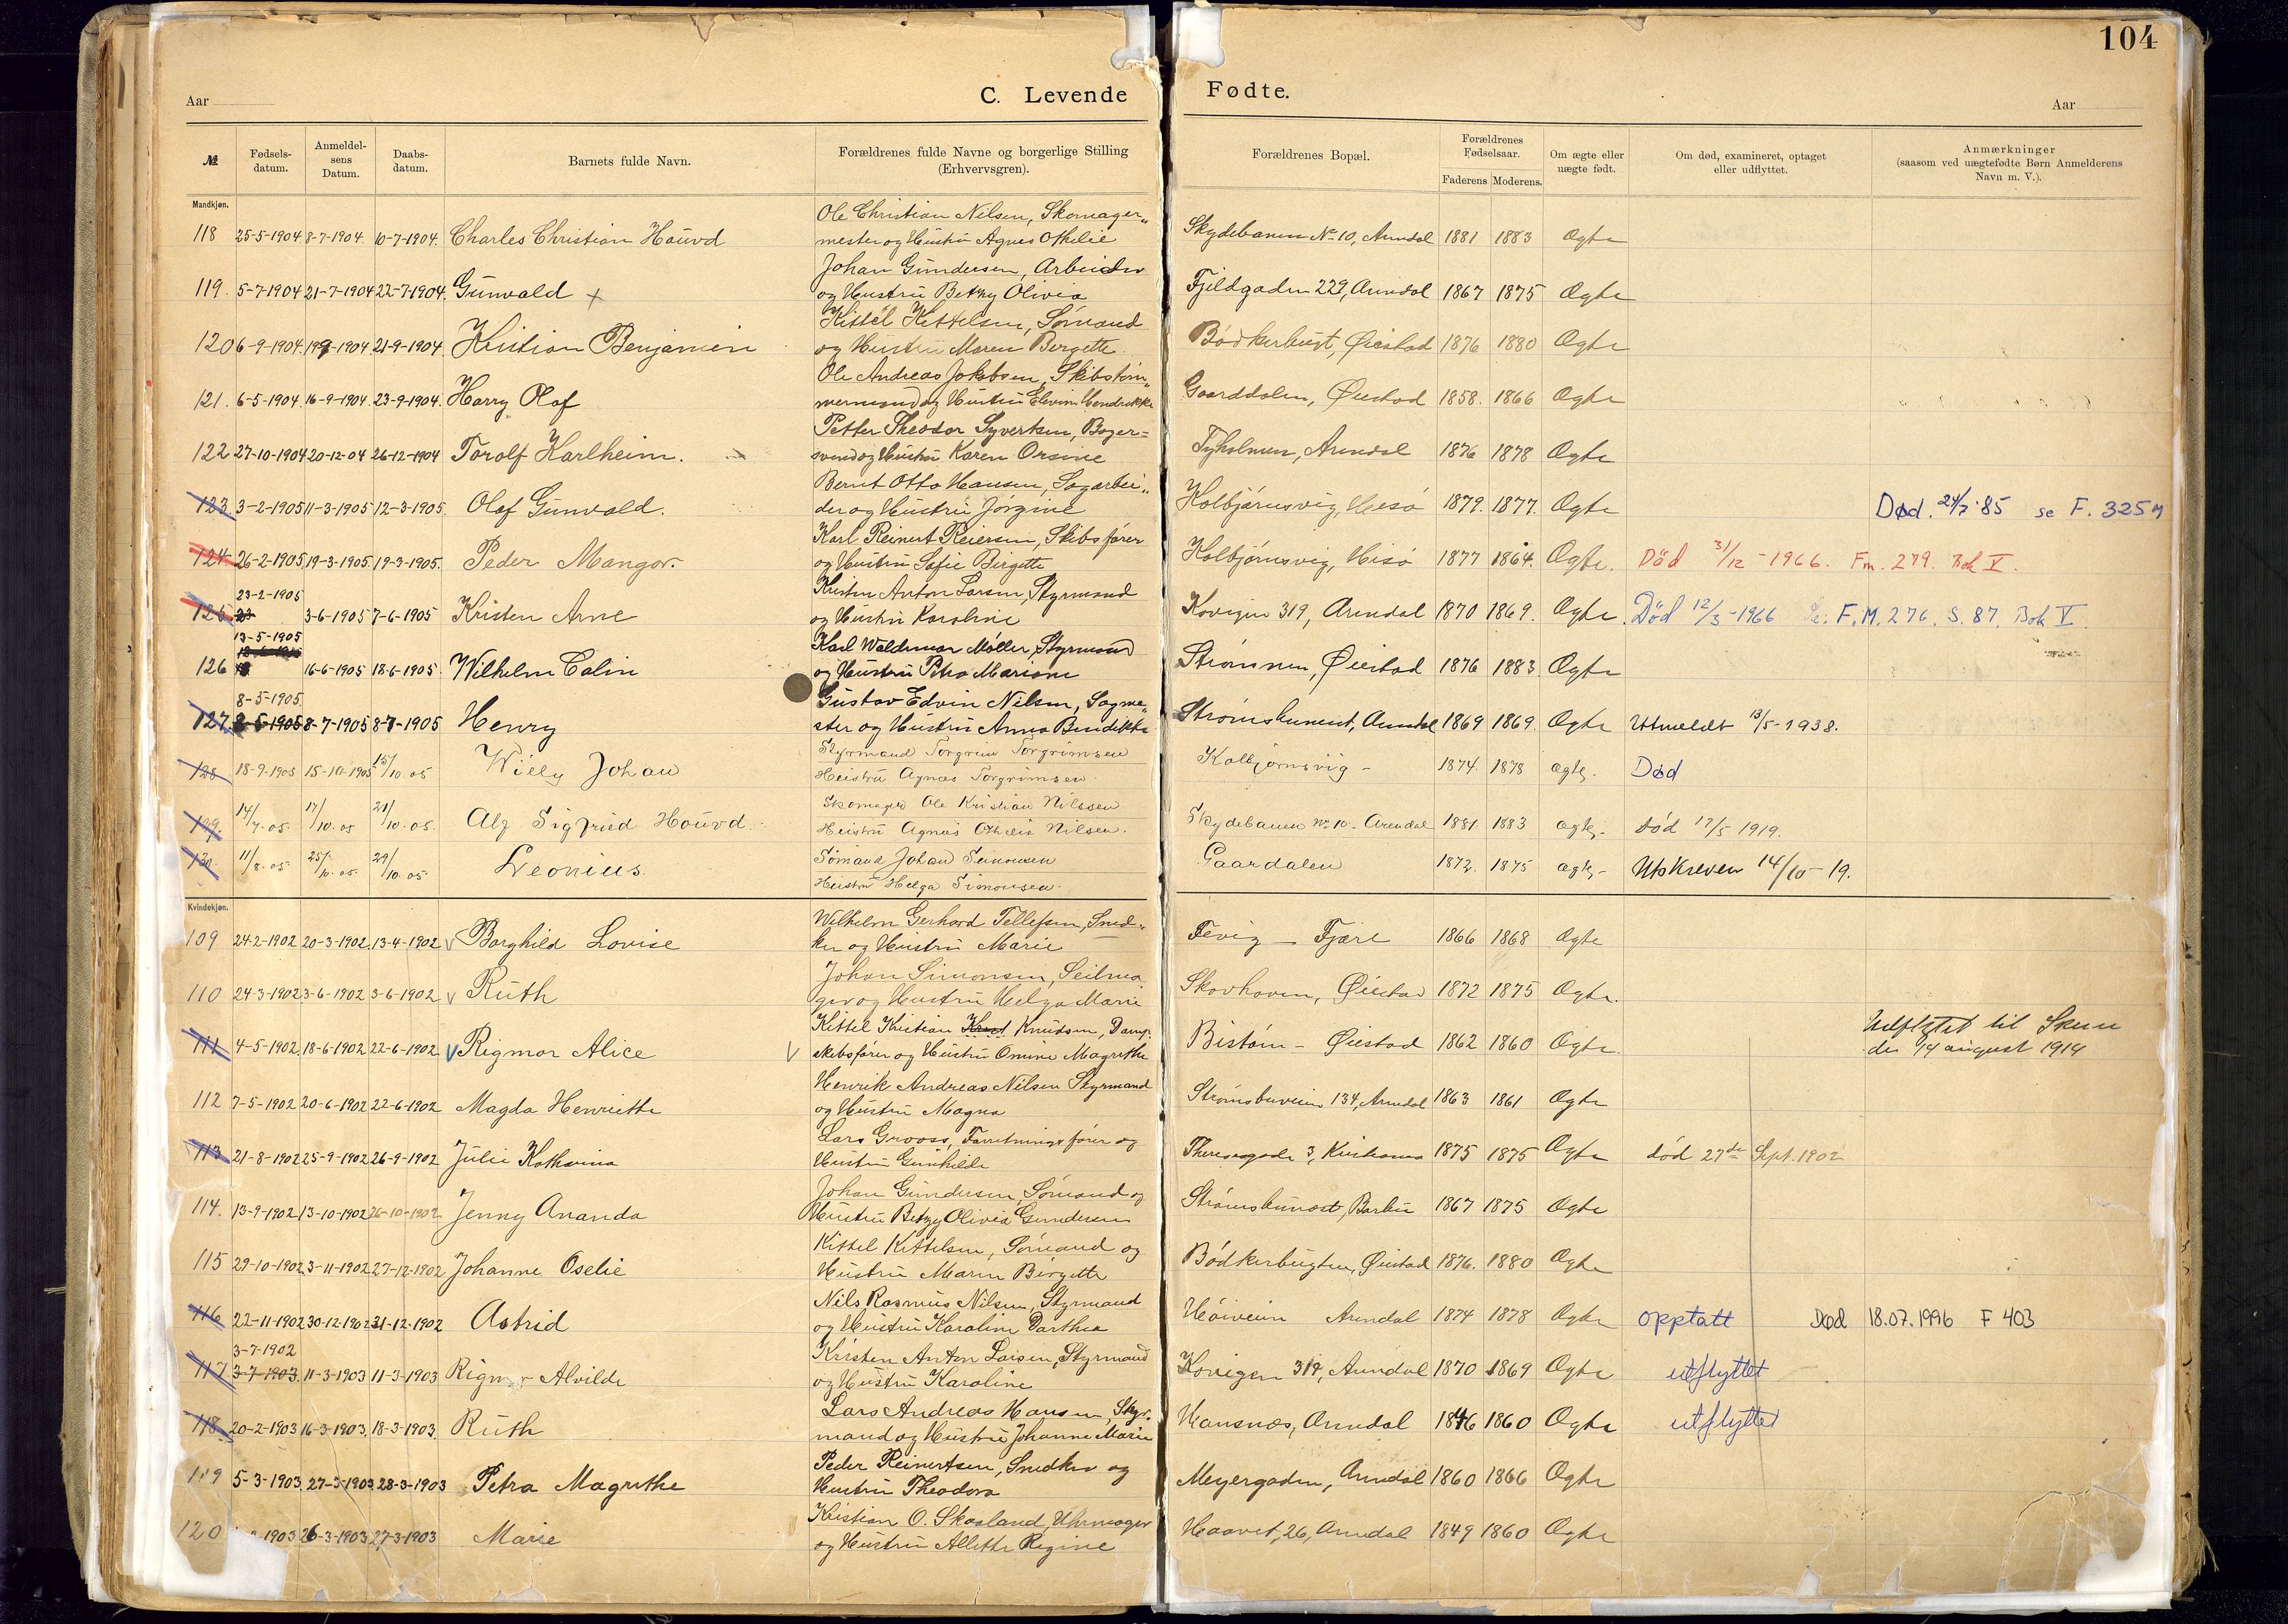 104
Aar
C. Levende Fødte.
Aar
№
Fødsels-datum.
Anmeldel-sens Datum.
Daabs-datum.
Barnets fulde Navn.
Forældrenes fulde Navne og borgerlige Stilling (Erhvervsgren).
Forældrenes Bopæl.
Forældrenes Fødselsaar.
Faderens Moderens.
Om ægte eller uægte født.
Om død, examineret, optaget eller udflyttet.
Anmærkninger (saasom ved uægtefødte Børn Anmelderens Navn m. V.).
Mandkjøn.
Ole Christian Nilsen, Skomager„
118 25-5-1904 8-7-1904. 10-7-1904. Charles Christian Houvd mester og Hustru Agnes Othelie Skydebanen No 10, Arendal 1881 1883 Ægte
Johan Gundersen, Arbeider
119. 5-7-1904 21-7-1904 22-7-1904. Gunvald x og Hustru Betzy Olivia Fjeldgaden 229, Arendal 1867 1875 Ægte
Kittel Kittelsen, Sømand
120 6-9-1904. 19-9-1904 21-9-1904. Kristian Benjamin og Hustru Maren Bergette Bødkerbugt, Øiestad 1876 1880 Ægte
Ole Andreas Jakobsen, Skibstøm„
121. 6-5-1904. 16-9-1904. 23-9-1904. Harry Olaf mermand og Hustru Elevine Hendrikke Gaarddalen, Øiestad 1858. 1866 Ægte
Petter Theodor Syvertsen, Bager=
122 27-10-1904 20-12-04 26-12-1904 Torolf Karlheim. svend og Hustru Karen Orsine Tyholmen, Arendal 1876 1878 Ægte
Bernt Otto Hansen, Sagarbei„
123. 3-2-1905 11-3-1905 12-3-1905. Olaf Gunvald. der og Hustru Jørgine Kolbjørnsvig, Hisø 1879. 1877. Ægte Død. 24/7-85 se F. 325 M
Karl Reinert Reiersen, Skibsfører
124. 26-2-1905. 19-3-1905. 19-3-1905. Peder Mangor. og Hustru Sofie Birgette Kolbjørnsvig, Hisø 1877 1864. Ægte. Död 31/12-1966. Fm. 279. Bok V.
23-2-1905 Kristen Anton Larsen, Styrmand
125. 23 3-6-1905 7-6-1905 Kristen Arne og Hustru Karoline Kovigen 319, Arendal 1870 1869. Ægte. Död 12/3-1966 Se: F.M. 276. S. 87. Bok V.
13-5-1905 Karl Waldemar Møller, Styrmand
126 16-6-1905 18-6-1905. Wilhelm Colin og Hustru Petra Mariane Strømmen, Øiestad 1876 1883 Ægte
8-5-1905. Gustav Edvin Nilsen, Sagme„
127. 8-5-1905 8-7-1905 8-7-1905 Henry ster og Hustru Anna Bendikke Strømsbuneset, Arendal 1869 1869. Ægte Utmeldt 13/5-1938.
Styrmand Torgrim Torgrimsen
128 18-9-1905 15-10-1905 15/10.05 Willy Johan Hustru Agnes Torgrimsen Kolbjørnsvig- 1874. 1878 ægte. Død
Skomager Ole Kristian Nilssen
129. 14/7.05. 17/10.05 21/10.05. Alf Sigfried Houvd. Hustru Agnes Othelie Nilsen. Skydebanen No 10- Arendal 1881. 1883 ægte- død 17/5 1919.
Sømand Johan Simonsen
130. 11/8.05. 25/10.05. 29/10.05 Leonius. Hustru Helga Simonsen. Gaardalen 1872. 1875 ægte- Utskreven 14/10-19.
Kvindekjøn.
Wilhelm Gerhard Tellefsen, Sned„
109 24-2-1902 20-3-1902 13-4-1902 v Borghild Lovise ker og Hustru Marie Fevig - Fjære 1866 1868 Ægte
Johan Simonsen, Seilma
110 24-3-1902 3-6-1902 3-6-1902 v Ruth ger og Hustru Helga Marie Skovhaven, Øiestad 1872 1875 Ægte.
Kittel Kristian Knudsen, Damp-
111 4-5-1902. 18-6-1902 22-6-1902. v Rigmor Alice v skibsfører og Hustru Omine Magrethe Bistøin - Øiestad 1862 1860 Ægte. Udflyttet til Skien den 14 august 1914
Henrik Andreas Nilsen Styrmand
112 7-5-1902 20-6-1902 22-6-1902 Magda Henriette og Hustru Magna Strømsbuveien 134, Arendal 1863 1861 Ægte
Lars Grooss, Forretningsfører og
113 21-8-1902 25-9-1902 26-9-1902 Julie Katharina Hustru Gunhilde Theresesgade 3, Kristiania 1875 1875 Ægte død 27de Sept. 1902
Johan Gundersen, Sømand og
114. 13-9-1902 13-10-1902 26-10-1902 Jenny Ananda Hustru Betzy Olivia Gundersen Strømsbuneset, Barbu 1867 1875 Ægte
Kittel Kittelsen, Sømand og
115 29-10-1902 3-11-1902 27-12-1902 Johanne Oselie Hustru Maren Birgette Bødkerbugten, Øiestad 1876. 1880 Ægte
Nils Rasmus Nilsen, Styrmand
116 22-11-1902 30-12-1902 31-12-1902 Astrid og Hustru Karoline Darthea Høiveien Arendal 1874 1878 Ægte opptatt Død 18.07.1996 F 403
3-7-1902 Kristen Anton Larsen, Styrmand
117 3-7-1903. 11-3-1903 11-3-1903 Rigmor Alvilde og Hustru Karoline Kovigen 319, Arendal 1870 1869 Ægte utflyttet
Lars Andreas Hansen, Styr-
118. 20-2-1903 16-3-1903. 18-3-1903. Ruth mand og Hustru Johanne Marie Hansnæs, Arendal 1846 1860 Ægte utflyttet
Peder Reinertsen, Snedker og
119 5-3-1903. 27-3-1903 28-3-1903 Petra Magrethe Hustru Theodora Meyergaden, Arendal 1860 1866 Ægte
Kristian O. Skaaland, Uhrmager
120 1903 26-3-1903 27-3-1903 Marie og Hustru Allette Regine Haavet, 26, Arendal 1849 1860 Ægte